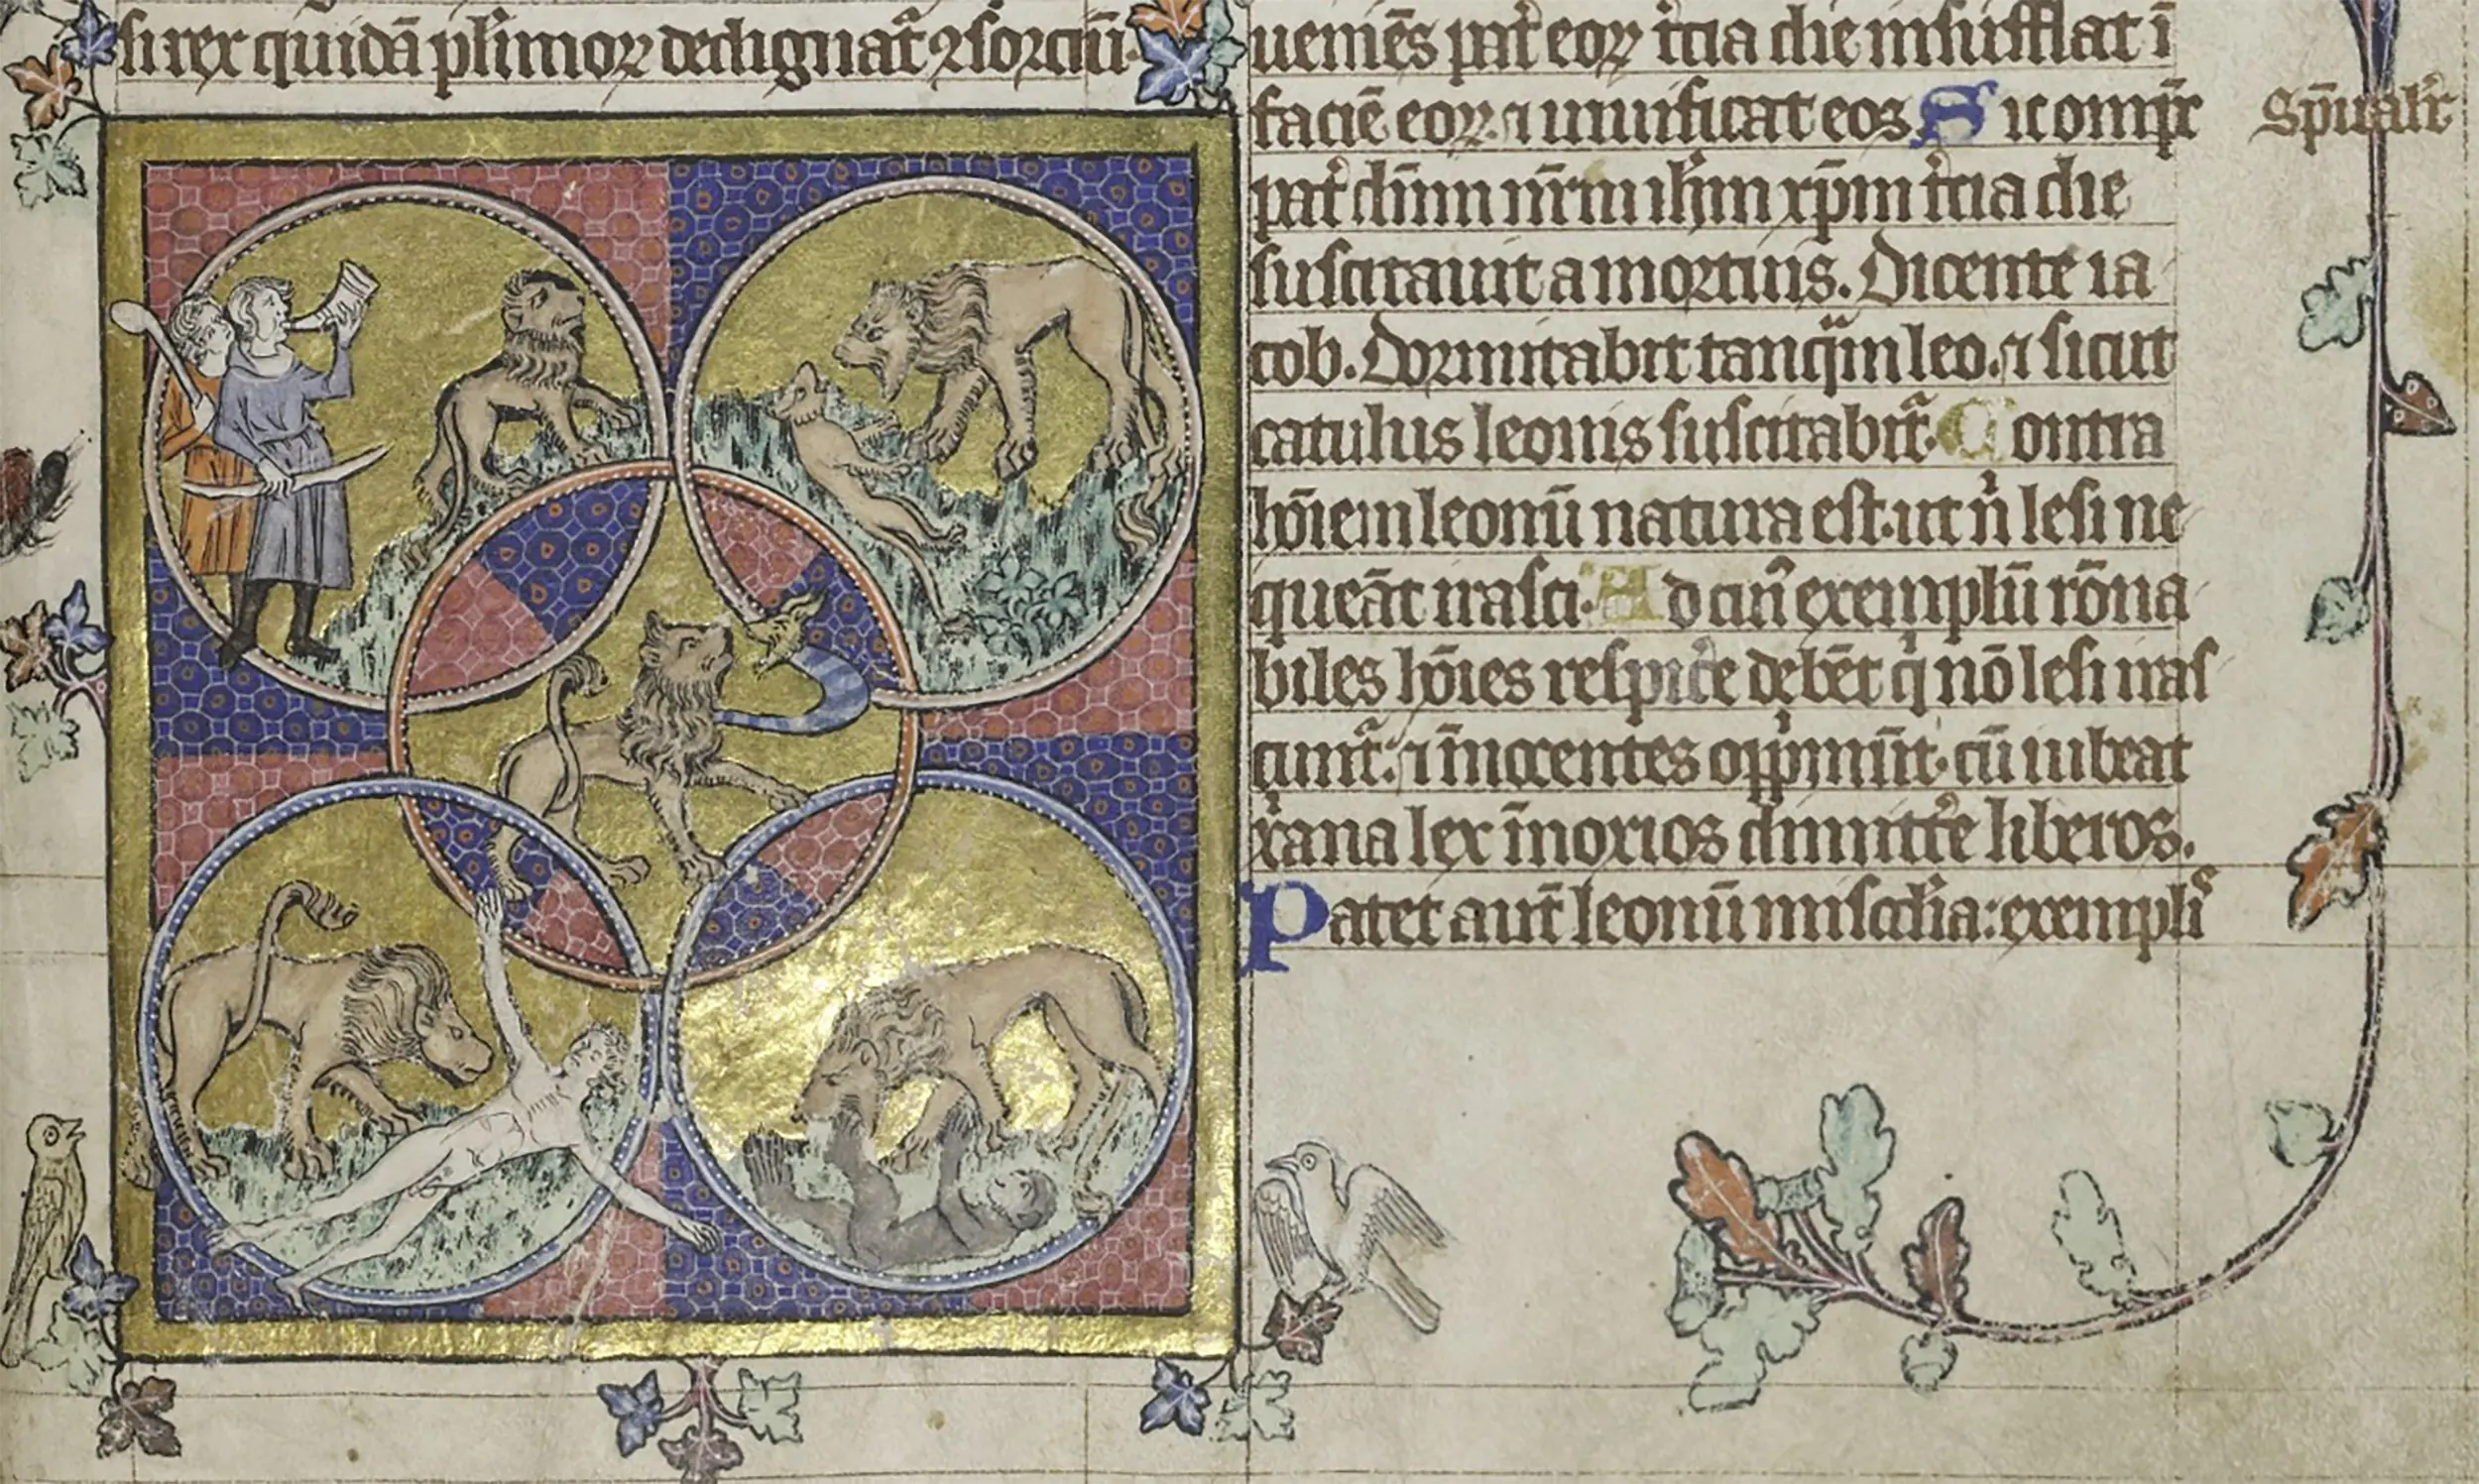 si rex quidā pl̄imoꝝ dedignat̄ ꝯsorciū.
ueniēs pat̄ eoꝝ t̄cia die insufflat ī
faciē eoꝝ. ⁊ uiuificat eos. Sic om̄p̄s
pat̄ dn̄m nr̄m ih̄m xp̄m t̄cia die
suscitauit a mortuis. Dicente ia
cob. Dormitabit tanqͣm leo. ⁊ sicut
catulus leonis suscitabit᷑. Contra
hōiem leonū natura est. ut n̄ lesi ne
queāt irasci. Ad cui᷒ exemplū rōna
biles hōies respic̄e debēt qͥ nō lesi iras
cunt᷑. ⁊ īnocentes opp̄munt. cū iubeat
xͥana lex īnoxios dimitt̄e liberos.
Patet aut̄ leonū misc̄dia: exemplis
Sp̄ualit̄